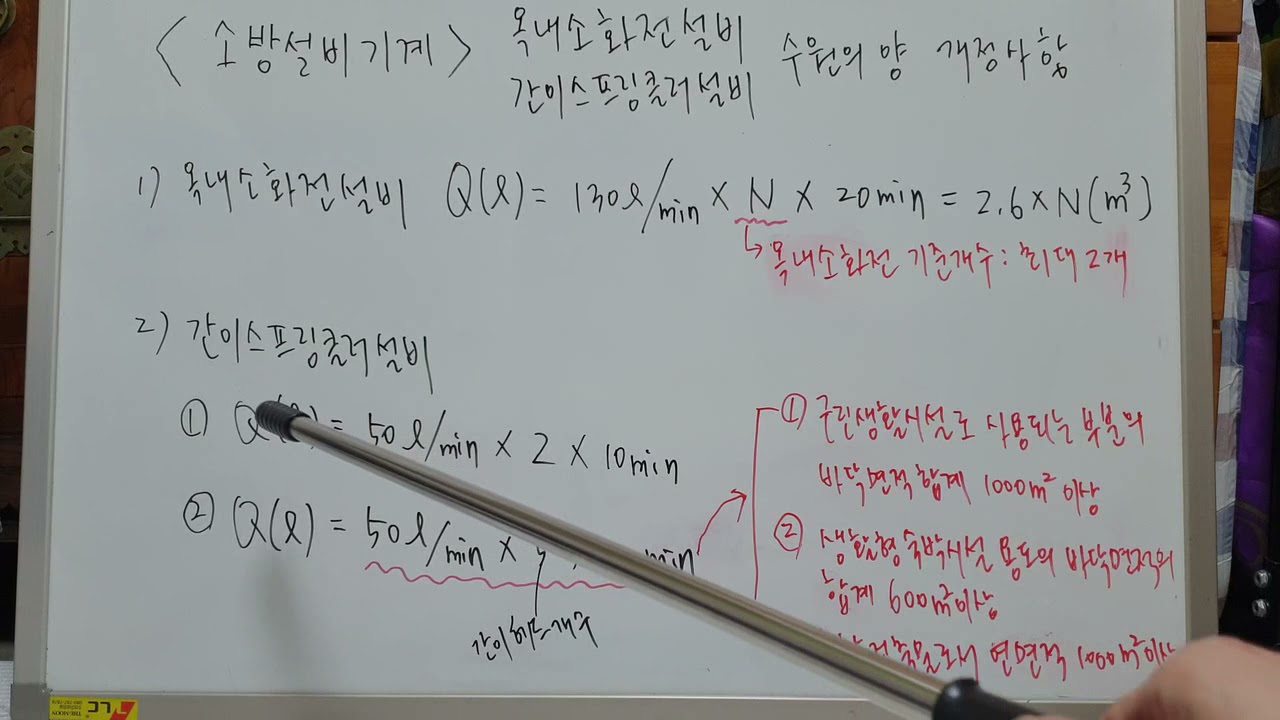 < 소방설비기계 > 옥내소화전설비 수원의 양 개정사항
간이스프링클러설비
1) 옥내소화전설비 Q(ℓ) = 130ℓ/min × N × 20min = 2.6 × N(m³)
↳ 옥내소화전 기준개수 : 최대 2개
2) 간이스프링클러설비
① Q(ℓ) = 50ℓ/min × 2 × 10min
② Q(ℓ) = 50ℓ/min × min
간이헤드개수
① 근린생활시설로 사용되는 부분의
바닥면적합계 1000m² 이상
② 생활형 숙박시설 용도의 바닥면적의
합계 600m² 이상
연면적 1000m² 이상
LC